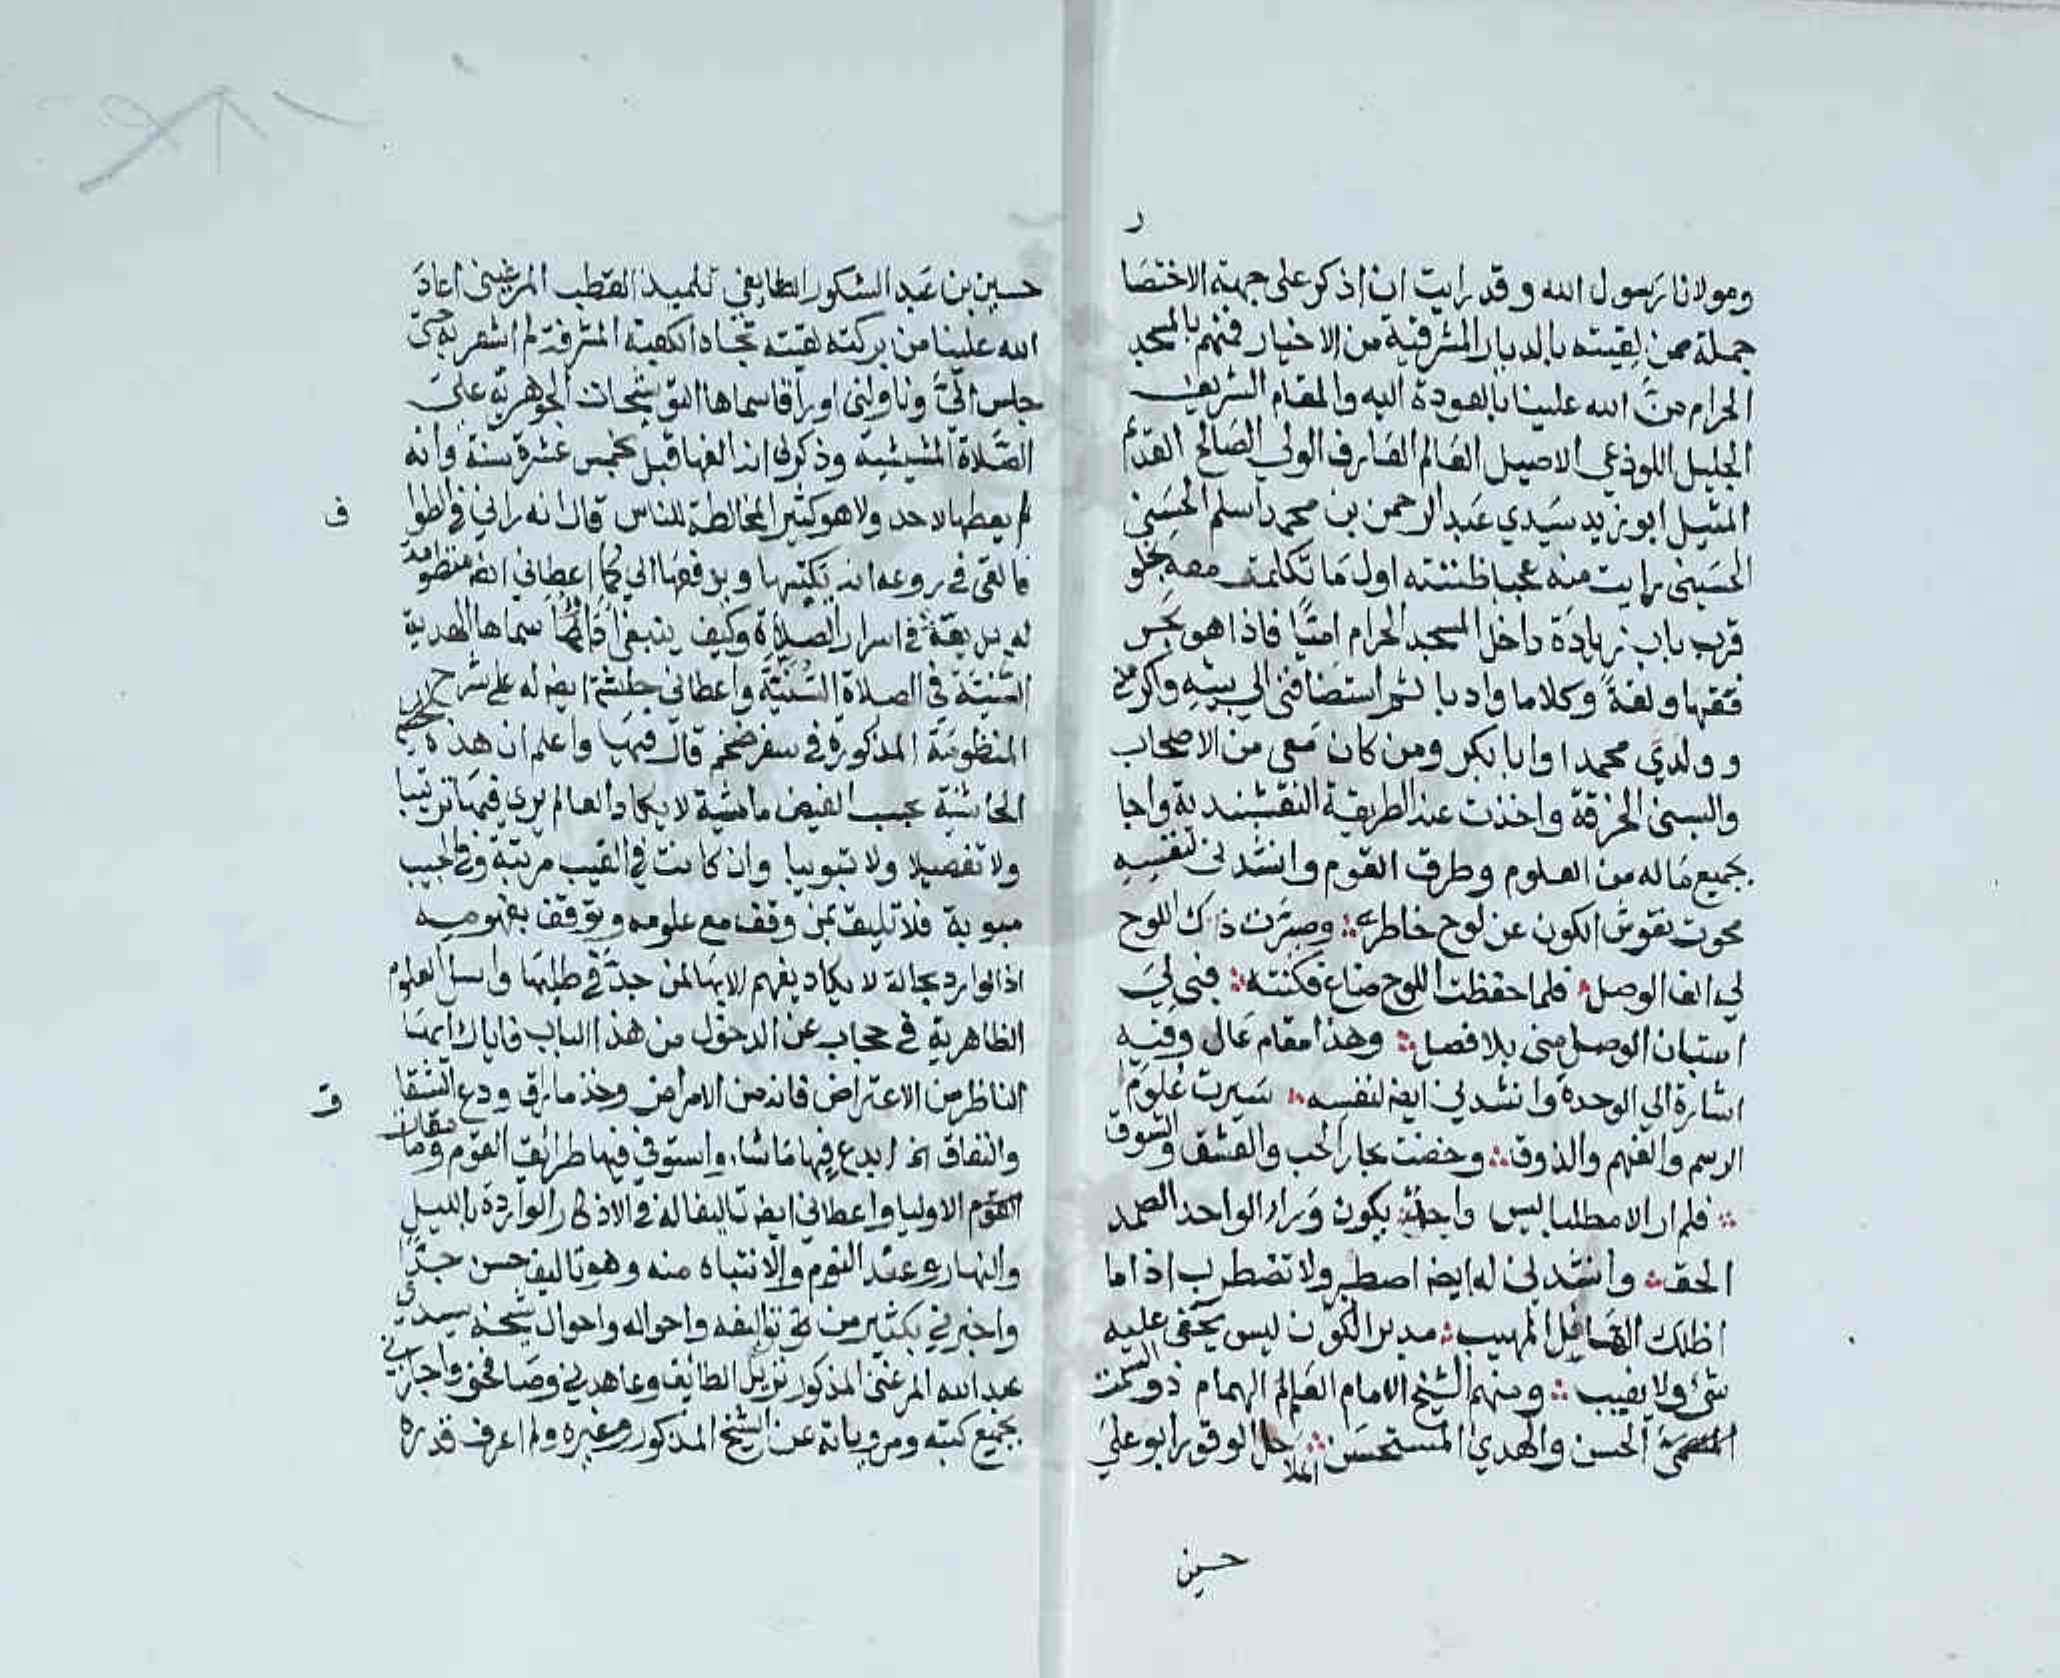 ر
ومولانا رسول الله وقد رايت ان اذكر على جهة الاختصا
جملة ممن لقيته بالديار المشرقية من الاخيار فمنهم بالمسجد
الحرام منّ الله علينا بالعودة اليه والمقام الشريف
الجليل اللوذعي الاصيل العالم العارف الولي الصالح القدم
المثيل ابو زيد سيدي عبد الرحمن بن محمد اسلم الحسني
الحسيني رايت منه عجبا ظننته اول ما تكلمت معه بخلو
قرب باب زيادة داخل المسجد الحرام اميّا فاذا هو بحر
فقها ولغة وكلاما وادبا ثم استضافني الى بيته واكرمني
وولدي محمدا وابا بكر ومن كان معي من الاصحاب
والبسني الخرقة واخذت عنه الطريقة النقشبندية واجا
بجميع ما له من العلوم وطرق القوم وانشدني لنفسه
محوت نقوش الكون عن لوح خاطري وصيرت ذاك اللوح
لي الف الوصل فلما حفظت اللوح ضاع فكنته فنى لي
استبان الوصل مني بلا فصل وهذا مقام عال وفيه
اشارة الى الوحدة وانشدني ايضا لنفسه سيرت علوم
الرسم والفهم والذوق وخضت بحار الحب والعشق والشوق
فلم ار الا مطلبا ليس واحد يكون وراء الواحد الصمد
الحق وانشدني له ايضا اصطبر ولا تضطرب اذا ما
اظلك الهائل المهيب مدبر الكون ليس يخفى عليه
شئ ولا يغيب ومنهم الشيخ الامام العالم الهمام ذو السمت
الحسن والهدي المستحسن الملاحل الوقور ابو علي
حسين
حسين بن عبد الشكور الطايفي تلميذ القطب المرغيني اعاد
الله علينا من بركته لقيته تجاه الكعبة المشرفة لم اشعر به حتى
جلس اليّ وناولني اوراقا سماها التوشيحات الجوهرية على
الصلاة المشيشية وذكر لي انه الفها قبل بخمس عشرة سنة وانه
لم يعطها لاحد ولا هو كثير المخالطة للناس قال انه راني في الطوا
ف
فالقي في روعه انه يكتبها ويدفعها الي كما اعطاني ايضا منظومة
له بديعة في اسرار الصلاة وكيف ينبغي اداؤها سماها الهدية
السنية في الصلاة السنية واعطاني حاشية ايضا له على شرح
المنظومة المذكورة في سفر ضخم قال فيها واعلم ان هذه
الحاشية بحسب الفيض ماشية لا يكاد العالم يرى فيها ترتيبا
ولا تفصيلا ولا تبويبا وان كانت في الغيب مرتبة وفي الجيب
مبوبة فلا تليق بمن وقف مع علومه وتوقف بفهومه
اذ الوارد بحالة لا يكاد يفهم الا بها لمن جدّ في طلبها واسل العلوم
الظاهرية في حجاب عن الدخول من هذا الباب فاياك ايها
الناظر من الاعتراض فانه من الامراض وخذ ما راق ودع الشقا
ق
والنفاق انخ ابدع فيها ما شاء واستوفى فيها طرائق القوم ومقامات
القوم الاوليا واعطاني ايضا تاليفا له في الاذكار الواردة بالليل
والنهار وعند النوم والانتباه منه وهو تاليف حسن جدا
واخبرني بكثير من تواليفه واحواله واحوال شيخه سيدي
عبد الله المرغني المذكور نزيل الطائف وعاهدني وصافحني واجازني
بجميع كتبه ومروياته عن الشيخ المذكور وغيره ولم اعرف قدره